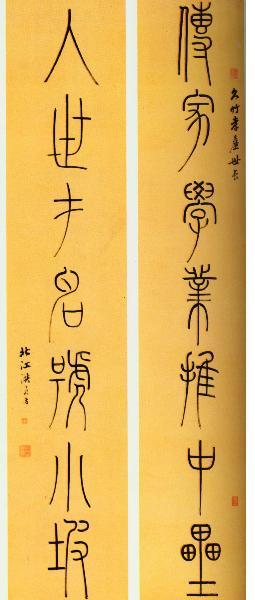 傳家學業推中壘
竹孝廉世長
人世才名號小坡
北江洪亮吉